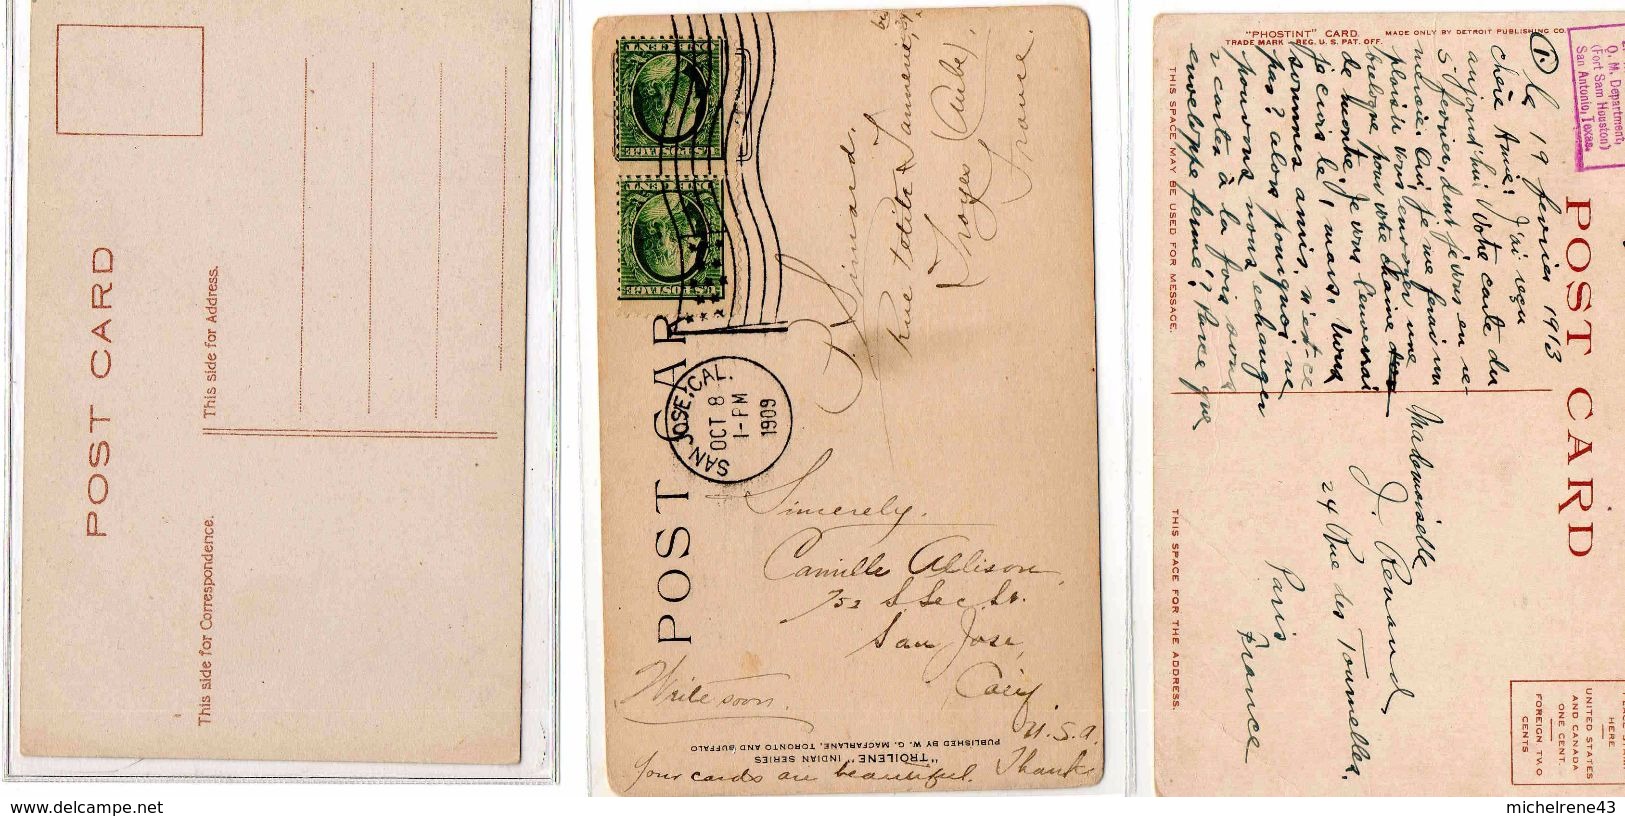 POST CARD
This side for Address.
This side for Correspondence.
ONE CENT
U.S. POSTAGE
ONE CENT
U.S. POSTAGE
POST CARD
SAN JOSE, CAL.
OCT 8
1-PM
1909
Simard,
Rue Petite
Troyes (Aube),
France.
Sincerely.
Camille Allison,
752 S Sec. St.
San Jose,
Calif
U.S.A.
Write soon.
Your cards are beautiful. Thanks
"TROILENE" INDIAN SERIES
PUBLISHED BY W. G. MACFARLANE, TORONTO AND BUFFALO
"PHOSTINT" CARD
TRADE MARK REG. U.S. PAT. OFF.
MADE ONLY BY DETROIT PUBLISHING CO.
Q. M. Department,
(Fort Sam Houston)
San Antonio, Texas.
POST CARD
THIS SPACE MAY BE USED FOR MESSAGE.
THIS SPACE FOR THE ADDRESS.
1.
Le 19 fevrier 1913
Chère Amie! J'ai reçu
aujourd'hui votre carte du
5 fevrier, dont je vous en re-
mercie. Oui, je me ferai un
plaisir vous envoyer une
breloque pour votre chaine
de montre. Je vous l'enverrai
je crois le 1 mars. Nous
sommes amis, n'est-ce
pas? alors pourquoi ne
pouvons nous echanger
2 cartes à la fois sous
enveloppe fermé? Parce que
Mademoiselle
J. Renaud,
24 Rue des Tournelles.
Paris
France
HERE
UNITED STATES
AND CANADA
ONE CENT
FOREIGN TWO
CENTS
www.delcampe.net
michelrene43